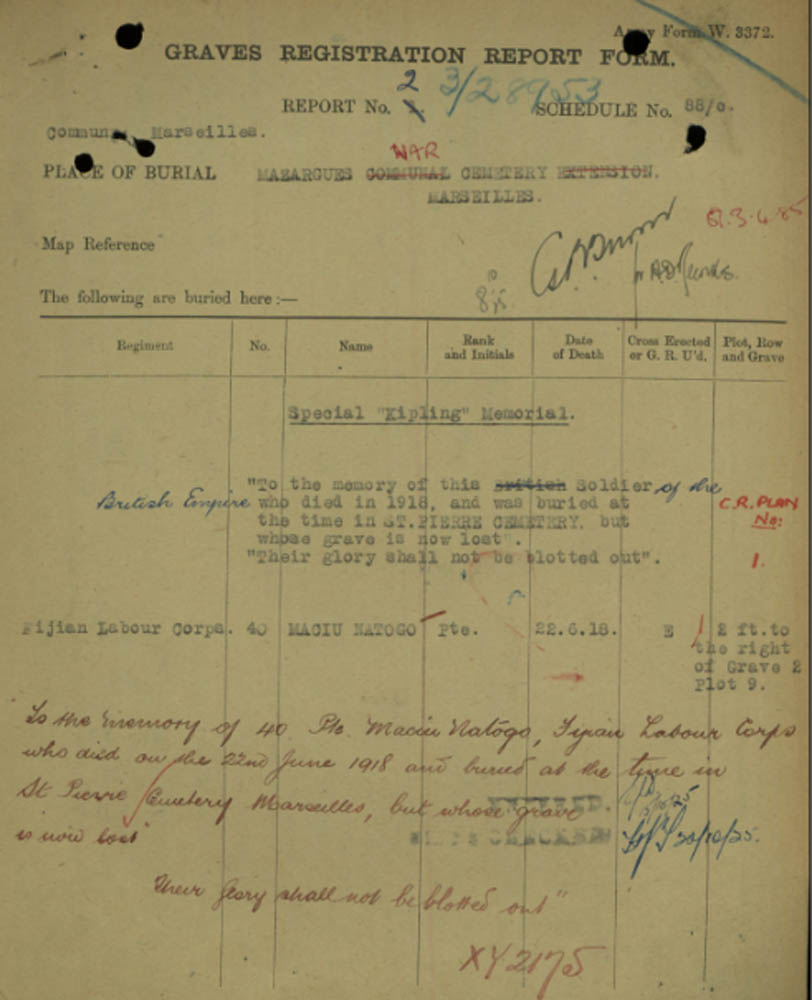 Army Form W. 3372.
GRAVES REGISTRATION REPORT FORM.
REPORT No. 2 3/28953 SCHEDULE No. 88/c.
Commune, Marseilles.
WAR
PLACE OF BURIAL MAZARGUES COMMUNAL CEMETERY EXTENSION.
MARSEILLES.
Map Reference
The following are buried here :—
Regiment No. Name Rank and Initials Date of Death Cross Erected or G. R. U'd. Plot, Row and Grave
Special "Kipling" Memorial.
"To the memory of this British Soldier of the
British Empire who died in 1918, and was buried at
the time in ST.PIERRE CEMETERY, but
whose grave is now lost".
"Their glory shall not be blotted out".
C.R. PLAN
No:
1.
Fijian Labour Corps. 40 MACIU NATOGO Pte. 22.6.18. E 2 ft.to
the right
of Grave 2
Plot 9.
To the memory of 40 Pte. Maciu Natogo, Fijian Labour Corps
who died on the 22nd June 1918 and buried at the time in
St Pierre Cemetery Marseilles, but whose grave
is now lost"
CHECKED
30/10/25.
Their glory shall not be blotted out"
XY2175